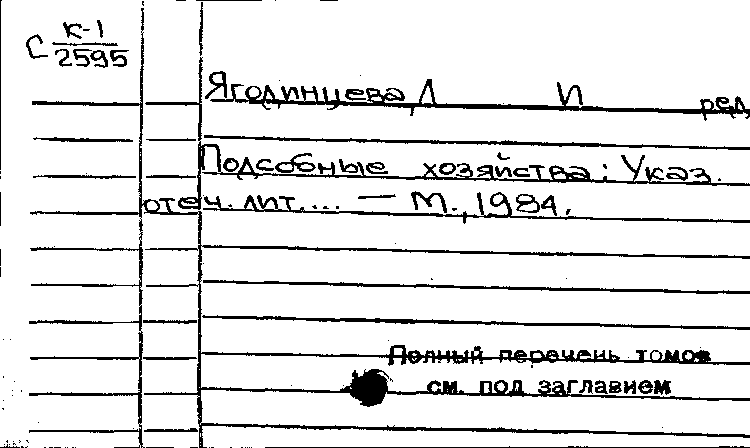 С К-1
2595
Ягодинцева, Л И ред
Подсобные хозяйства: Указ.
отеч. лит.... — М., 1984.
Полный перечень томов
см. под заглавием